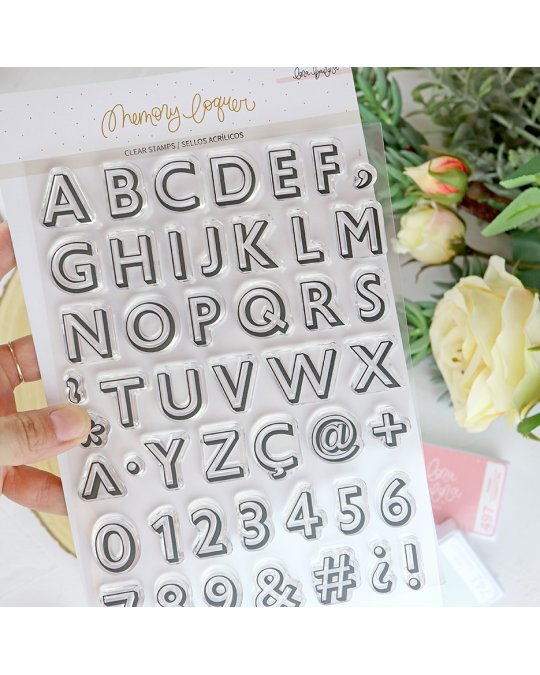 memory loquer
CLEAR STAMPS / SELLOS ACRÍLICOS
A B C D E F ,
G H I J K L M
N O P Q R S
~ T U V W X
* Y Z Ç @ +
^ ·
0 1 2 3 4 5 6
7 8 9 & # ¿ !
497